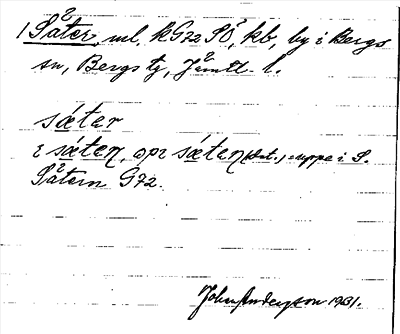 1 Såter, ml, kG72SÖ, kb, by i Bergs
sn, Bergs tg, Jämtl. l.
såtar
i såten, opr såten (dat.) uppe i S.
Såtern G72.
John Anderson 1931.